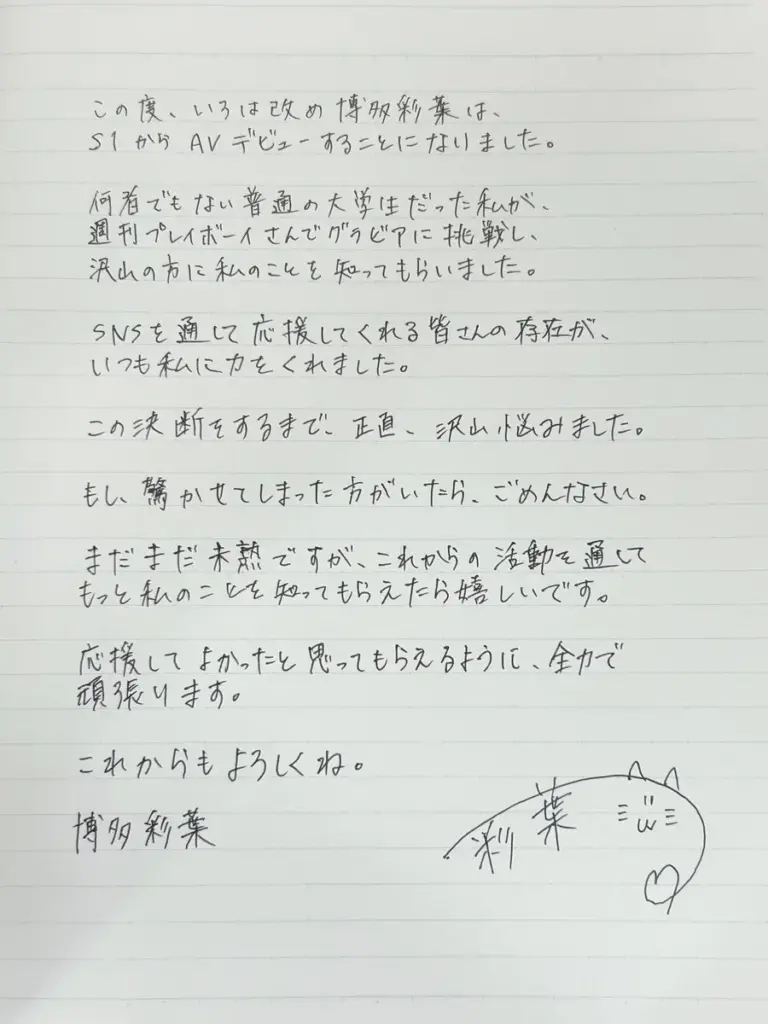 この度、いろは改め博多彩葉は、
S1からAVデビューすることになりました。
何者でもない普通の大学生だった私が、
週刊プレイボーイさんでグラビアに挑戦し、
沢山の方に私のことを知ってもらいました。
SNSを通して応援してくれる皆さんの存在が、
いつも私に力をくれました。
この決断をするまで、正直、沢山悩みました。
もし、驚かせてしまった方がいたら、ごめんなさい。
まだまだ未熟ですが、これからの活動を通して
もっと私のことを知ってもらえたら嬉しいです。
応援してよかったと思ってもらえるように、全力で
頑張ります。
これからもよろしくね。
博多彩葉
彩葉